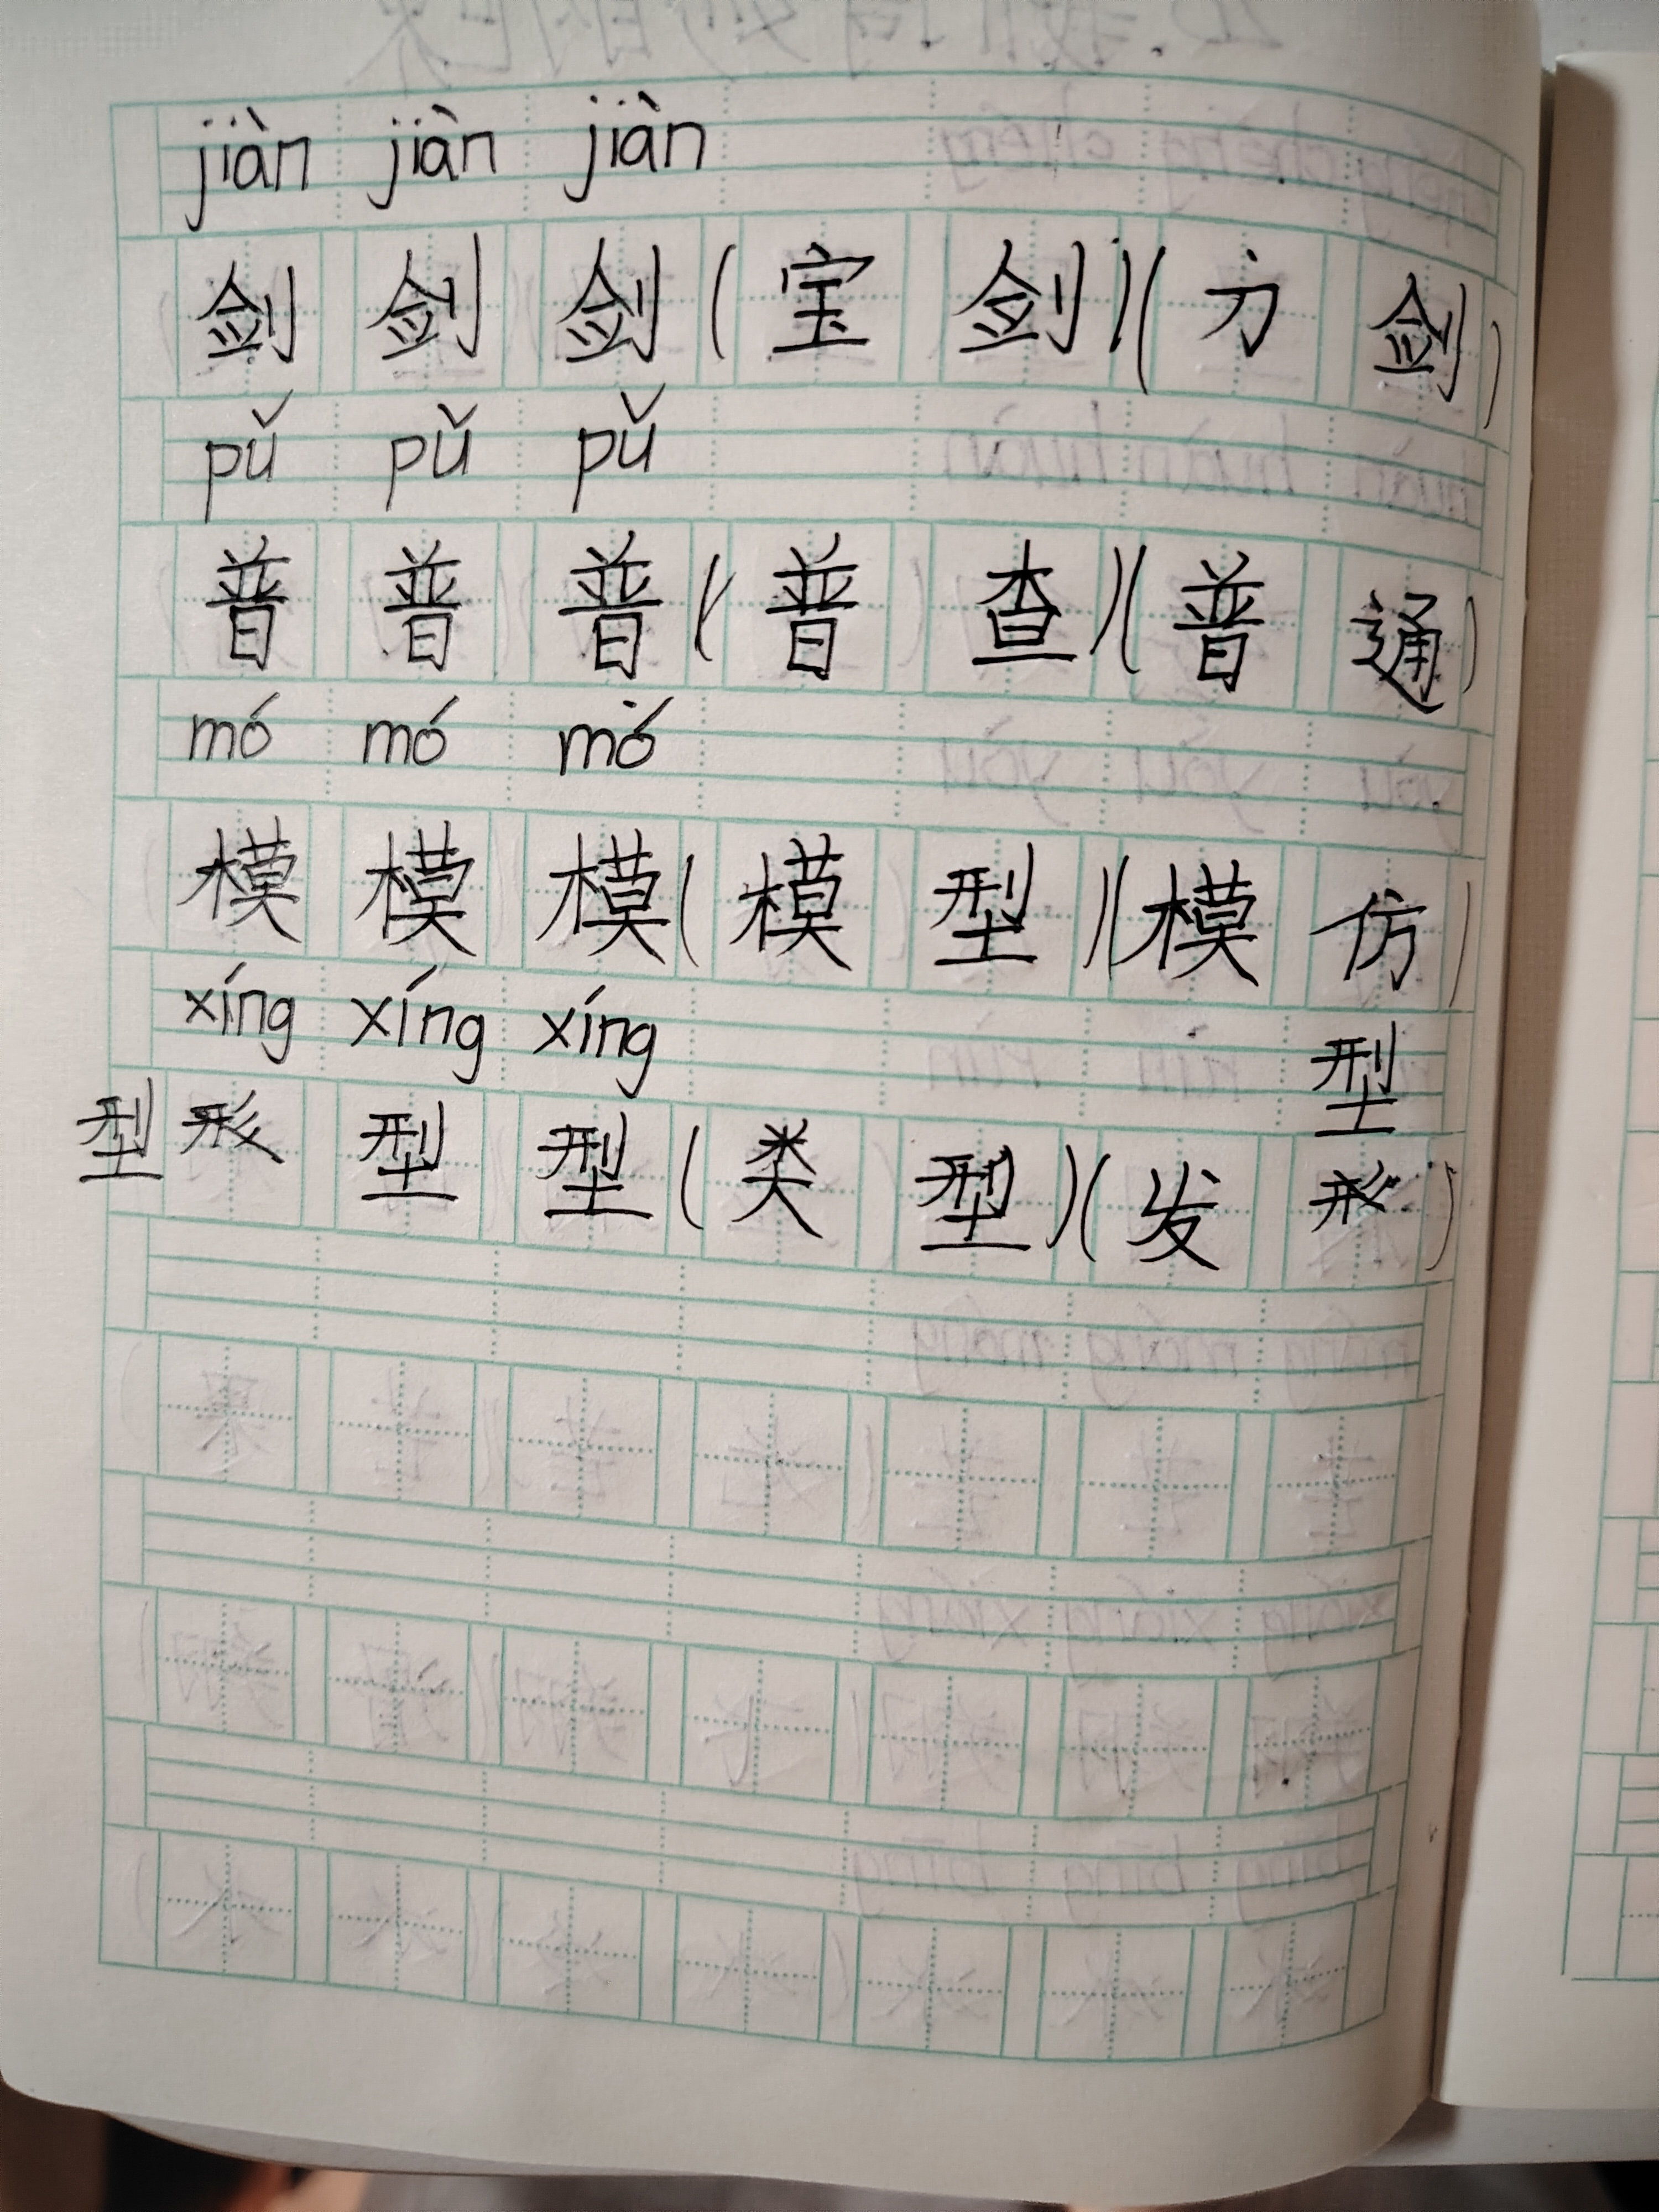 jiàn jiàn jiàn
剑 剑 剑 (宝 剑)(方 剑)
pǔ pǔ pǔ
普 普 普 (普 查)(普 通)
mó mó mó
模 模 模 (模 型)(模 仿)
xíng xíng xíng
型
型 形 型 型 (类 型)(发 形)